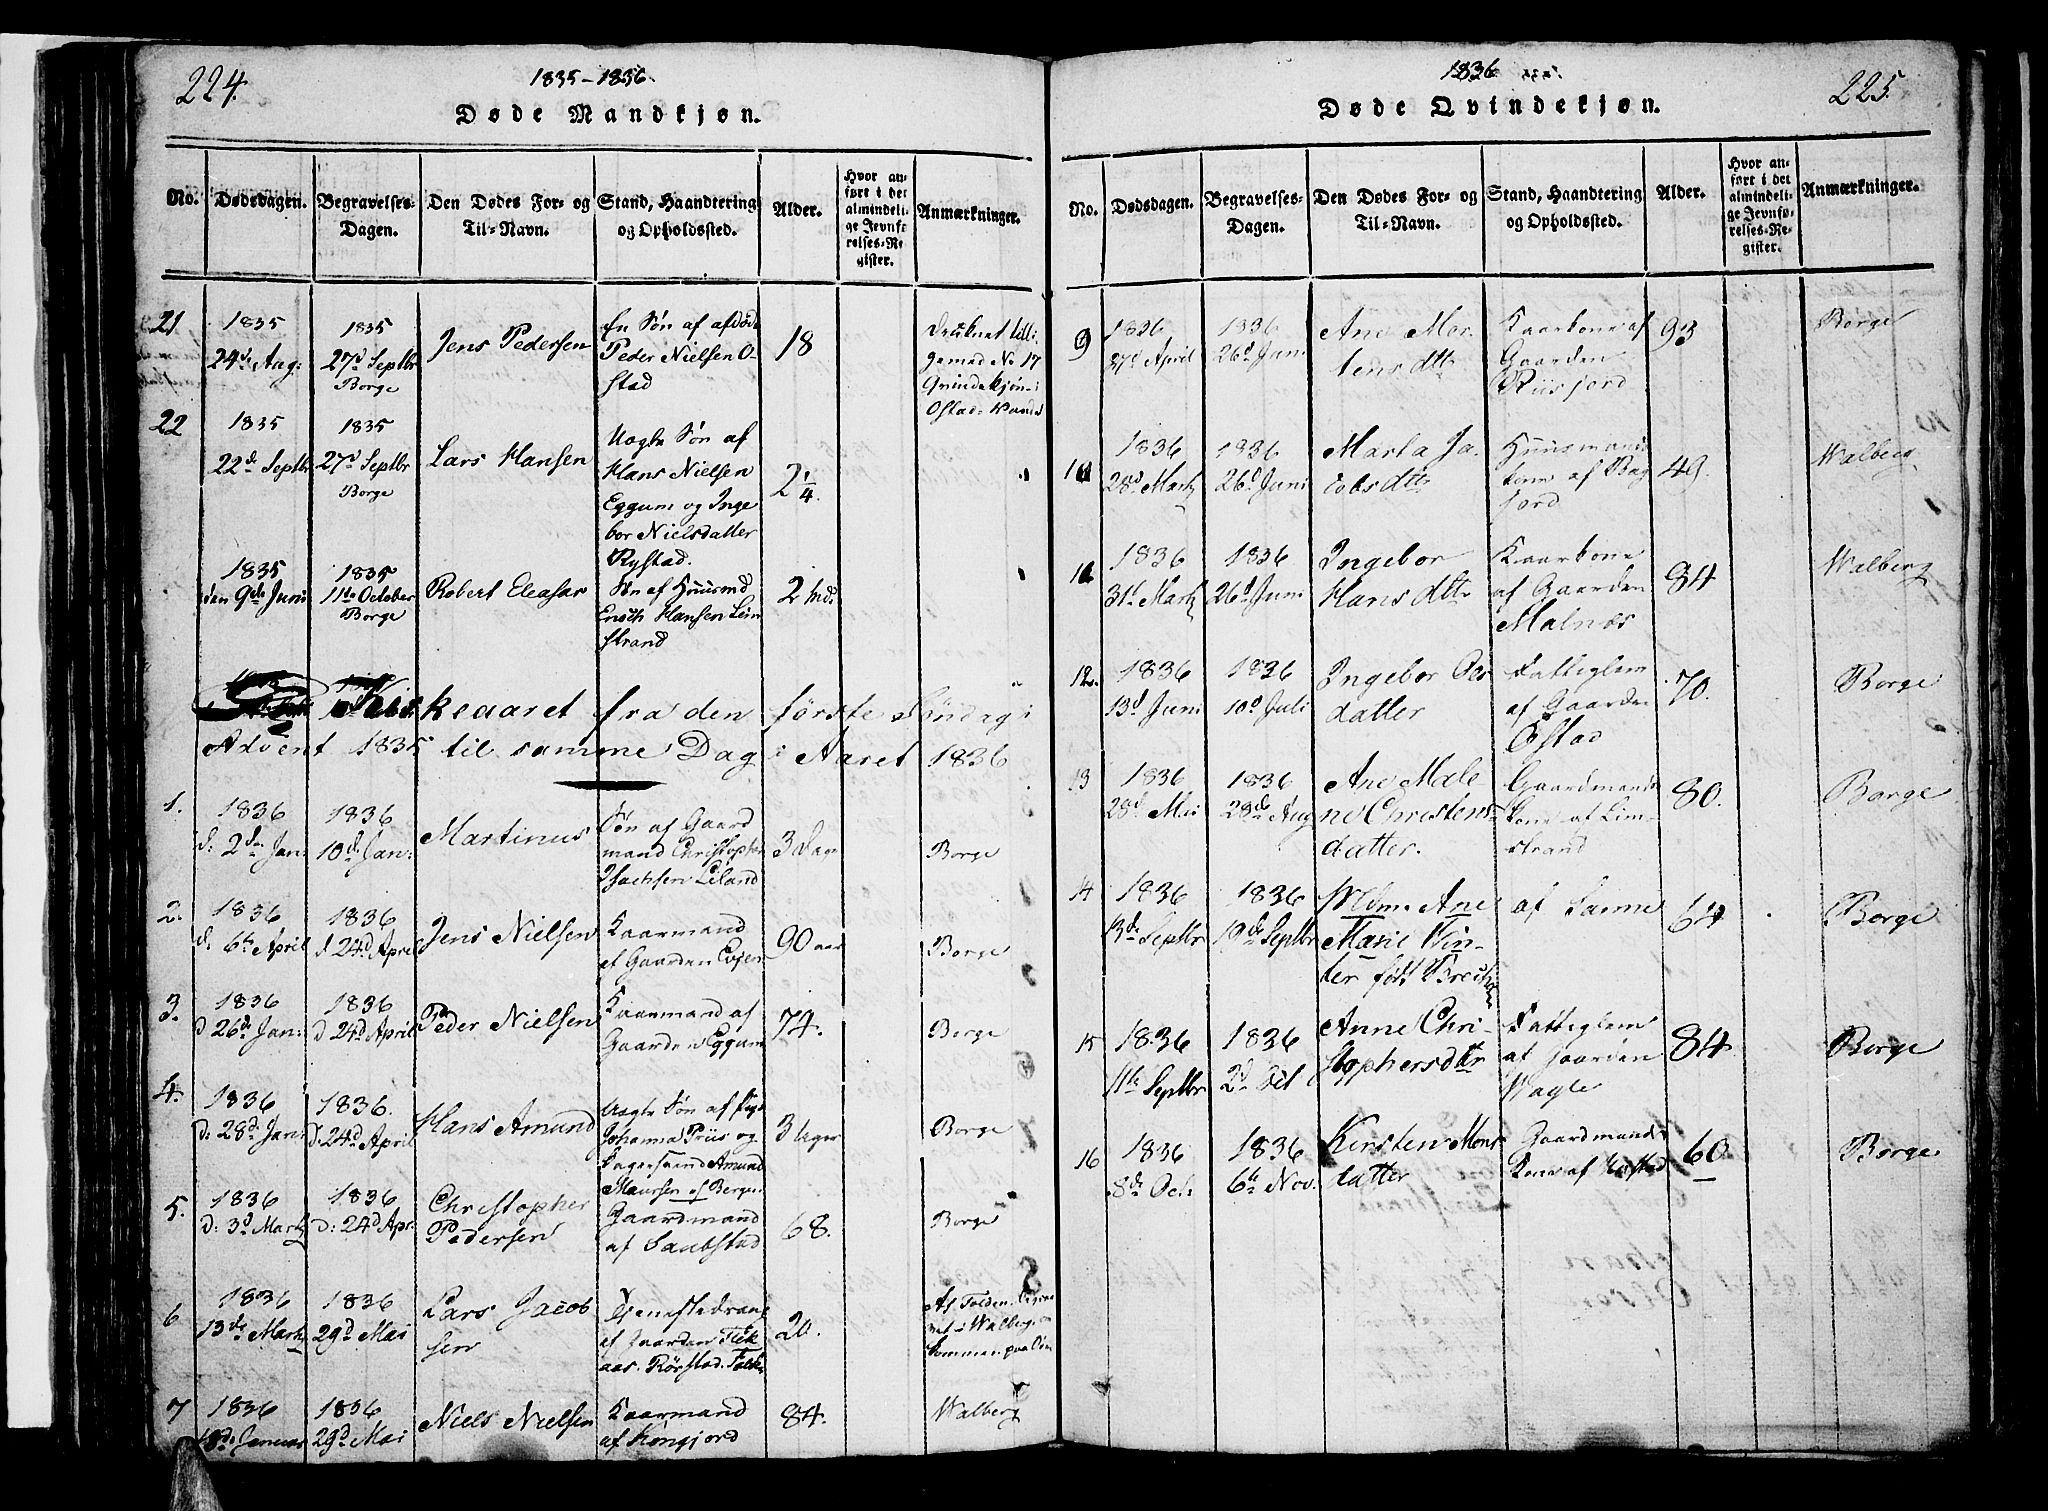 224.
1835-1836.
Døde Mandkjøn.
No.
Dødsdagen.
Begravelses-
Dagen.
Den Dødes For- og
Til-Navn.
Stand, Haandtering
og Opholdssted.
Alder.
Hvor an-
ført i det
almindeli-
ge Jevnfø-
relses-Re-
gister.
Anmærkninger.
21
1835
24de Aug:
1835
27d Septbr
Borge
Jens Pedersen
En Søn af afdøde
Peder Nielsen O-
stad
18
druknet tilli-
gemed No 17
Qvindekjøn i
Ostad-Vandet
22
1835
22de Septbr
1835
27d Septbr
Borge
Lars Hansen
Uægte Søn af
Hans Nielsen
Eggum og Inge
bor Nielsdatter
Rystad.
2 1/4.
1835
den 9de Juni
1835
11te October
Borge
Robert Eleasar
Søn af Huusmd
Enoch Hansen Leim
strand
2 Md:
Kirkeaaret fra den første Søndag i
Advent 1835 til samme Dag i Aaret 1836
1.
1836
d: 2den Jan:
1836
10de Jan:
Martinus
Søn af Gaard
mand Christopher
Isachsen Liland
3 Dage
Borge
2.
1836
d: 6te April
1836
d 24d April
Jens Nielsen
Kaarmand
af Gaarden Evjen
90 aar
Borge
3.
1836
d 26de Jan:
1836
d 24d April
Peder Nielsen
Kaarmand af
Gaarden Eggum
74.
Borge
4.
1836
d: 28de Jan:
1836.
d: 24d April
Hans Amund
Uægte Søn af Pige
Johanna Priis og
Amund
Maursen af Bergen
3 Uger
Borge
5.
1836
d: 3d Marts
1836
d: 24d Apr
Christopher
Pedersen
Gaardmand
af Sandstad
68.
Borge
6
1836
13de Marts
1836
29d Mai
Lars Jacob
sen
Tjenestedreng
af Gaarden
aas. Rørstad.
20.
Af Folden. begra-
vet i Walberg,
kommen paa Søen
7
1836
Januar
1836
29d Mai
Niels Nielsen
Kaarmand
af Kongjord
84.
Walberg
225.
1836
Døde Qvindekjøn.
No.
Dødsdagen.
Begravelses-
Dagen.
Den Dødes For- og
Til-Navn.
Stand, Haandtering
og Opholdssted.
Alder.
Hvor an-
ført i det
almindeli-
ge Jevnfø-
relses-Re-
gister.
Anmærkninger.
9
1836
27d April
1836
26d Juni
Ane Mor
tensdtr
Kaarkone af
Gaarden
Riisjord
93
Borge
10
1836
28d Marts
1836
26d Juni
Marta Ja-
cobsdtr
Huusmands
kone af Bag
jord
49.
Walberg
1836
31d Marts
1836
26d Juni
Ingebor
Hansdtr
Kaarkone
af Gaarden
Malnæs
84
Walberg
12.
1836
13d Juni
1836
10d Juli
Ingebor Ols
datter
Fattiglem
af Gaarden
Ostad
70.
Borge
13
1836
28d Mai
1836
28de Aug
Ane Male
ne Christens-
datter.
Gaardmands
kone af Lim-
strand
80.
Borge
14
1836
13de Septbr
1836
19de Septbr
Mdm. Ane
Marie Win-
ter født
af Sanne
64
Borge
15
1836
11te Septbr
1836
2d Oct
Anne Chri-
stophersdtr
Fattiglem
af Gaarden
Wagle
84
Borge
16
1836
8de Oct:
1836
6te Nov.
Kirsten Mons
datter
Gaardmands
kone af
60
Borge